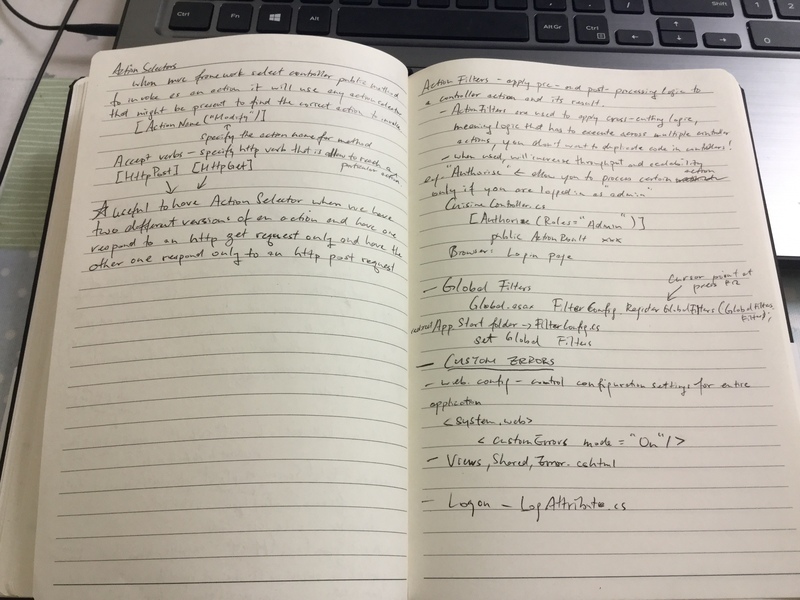 Ctrl Fn Alt Alt Gr Ctrl Shift 1 2 0
Action Selectors
when mvc framework select controller public method
to invoke as an action it will use any action selector
that might be present to find the correct action to invoke
[ActionName("Modify")]
specify the action name for method
Accept verbs - specify http verb that is allow to reach a
particular action
[HttpPost] [HttpGet]
A useful to have Action Selector when we have
two different versions of an action and have one
respond to an http get request only and have the
other one respond only to an http post request
Action Filters - apply pre- and post-processing logic to
a controller action and its result.
- Action Filters are used to apply cross-cutting logic,
meaning logic that has to execute across multiple controller
actions, you don't want to duplicate code in controllers!
- when used, will increase throughput and scalability
e.g. "Authorise" ← allow you to process certain action
only if you are logged in as "admin"
CuisineController.cs
[Authorise(Roles="Admin")]
public ActionResult xxx
Browser: Login page
- Global Filters
Cursor point at
press F12
Global.asax FilterConfig.RegisterGlobalFilters(GlobalFilters.
Filters);
App_Start folder → FilterConfig.cs
set Global Filters
- CUSTOM ERRORS
- web.config - control configuration settings for entire
application
<system.web>
<customErrors mode="On"/>
- Views, Shared, Error.cshtml
- Logon - LogAttribute.cs